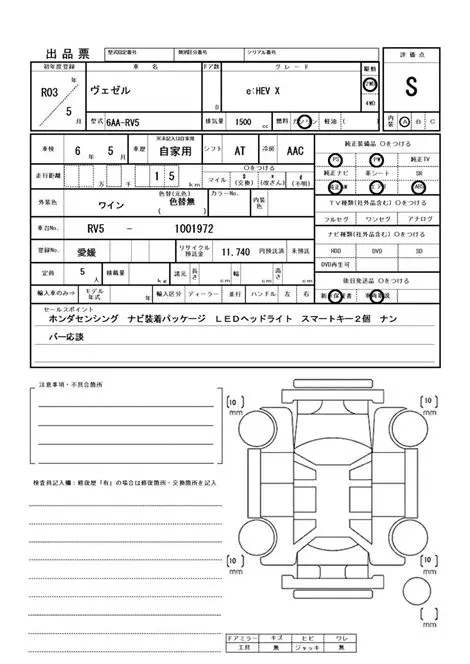 出品票 型式指定番号 類別区分番号 シリアル番号 評価点
初年度登録 車名 ドア数 グレード 駆動
R03 年 ヴェゼル e:HEV X 2WD S
5 月 D 4WD
型式 6AA-RV5 排気量 1500 cc 燃料 ガソリン 軽油 ( ) 内装 A B C
車検 6 年 5 月 車歴 ※未記入は自家用 自家用 シフト AT 冷房 AAC 純正装備品 〇をつける
PS PW 純正TV
走行距離 万 千 1 5 km 〇をつける マイル $ (交換) * (改ざん) # (不明) 純正ナビ 革シート SR
純正AW エアB ABS
外装色 ワイン 色替(元色) 色替無 ( ) カラーNo. 内装色 TV種類(社外品含む) 〇をつける
フルセグ ワンセグ アナログ
車台No. RV5 - 1001972 ナビ種類(社外品含む) 〇をつける
登録No. 愛媛 リサイクル預託金 11,740 円預託済 未預託 HDD DVD SD
DVD再生可
定員 5 人 積載量 kg 諸元 長さ cm 幅 cm 高さ cm 後日発送品 〇をつける
輸入車のみ⇒ モデル年式 年 輸入区分 ディーラー 並行 ハンドル 左 右 新車保証書 車両取説
セールスポイント
ホンダセンシング ナビ装着パッケージ LEDヘッドライト スマートキー2個 ナン
バー応談
注意事項・不具合箇所
[10] mm [10] mm
検査員記入欄：修復歴「有」の場合は修復箇所・交換箇所を記入
[10] mm [10] mm
[ ] mm
ドアミラー キズ ヒビ ワレ
工具 無 ジャッキ 無